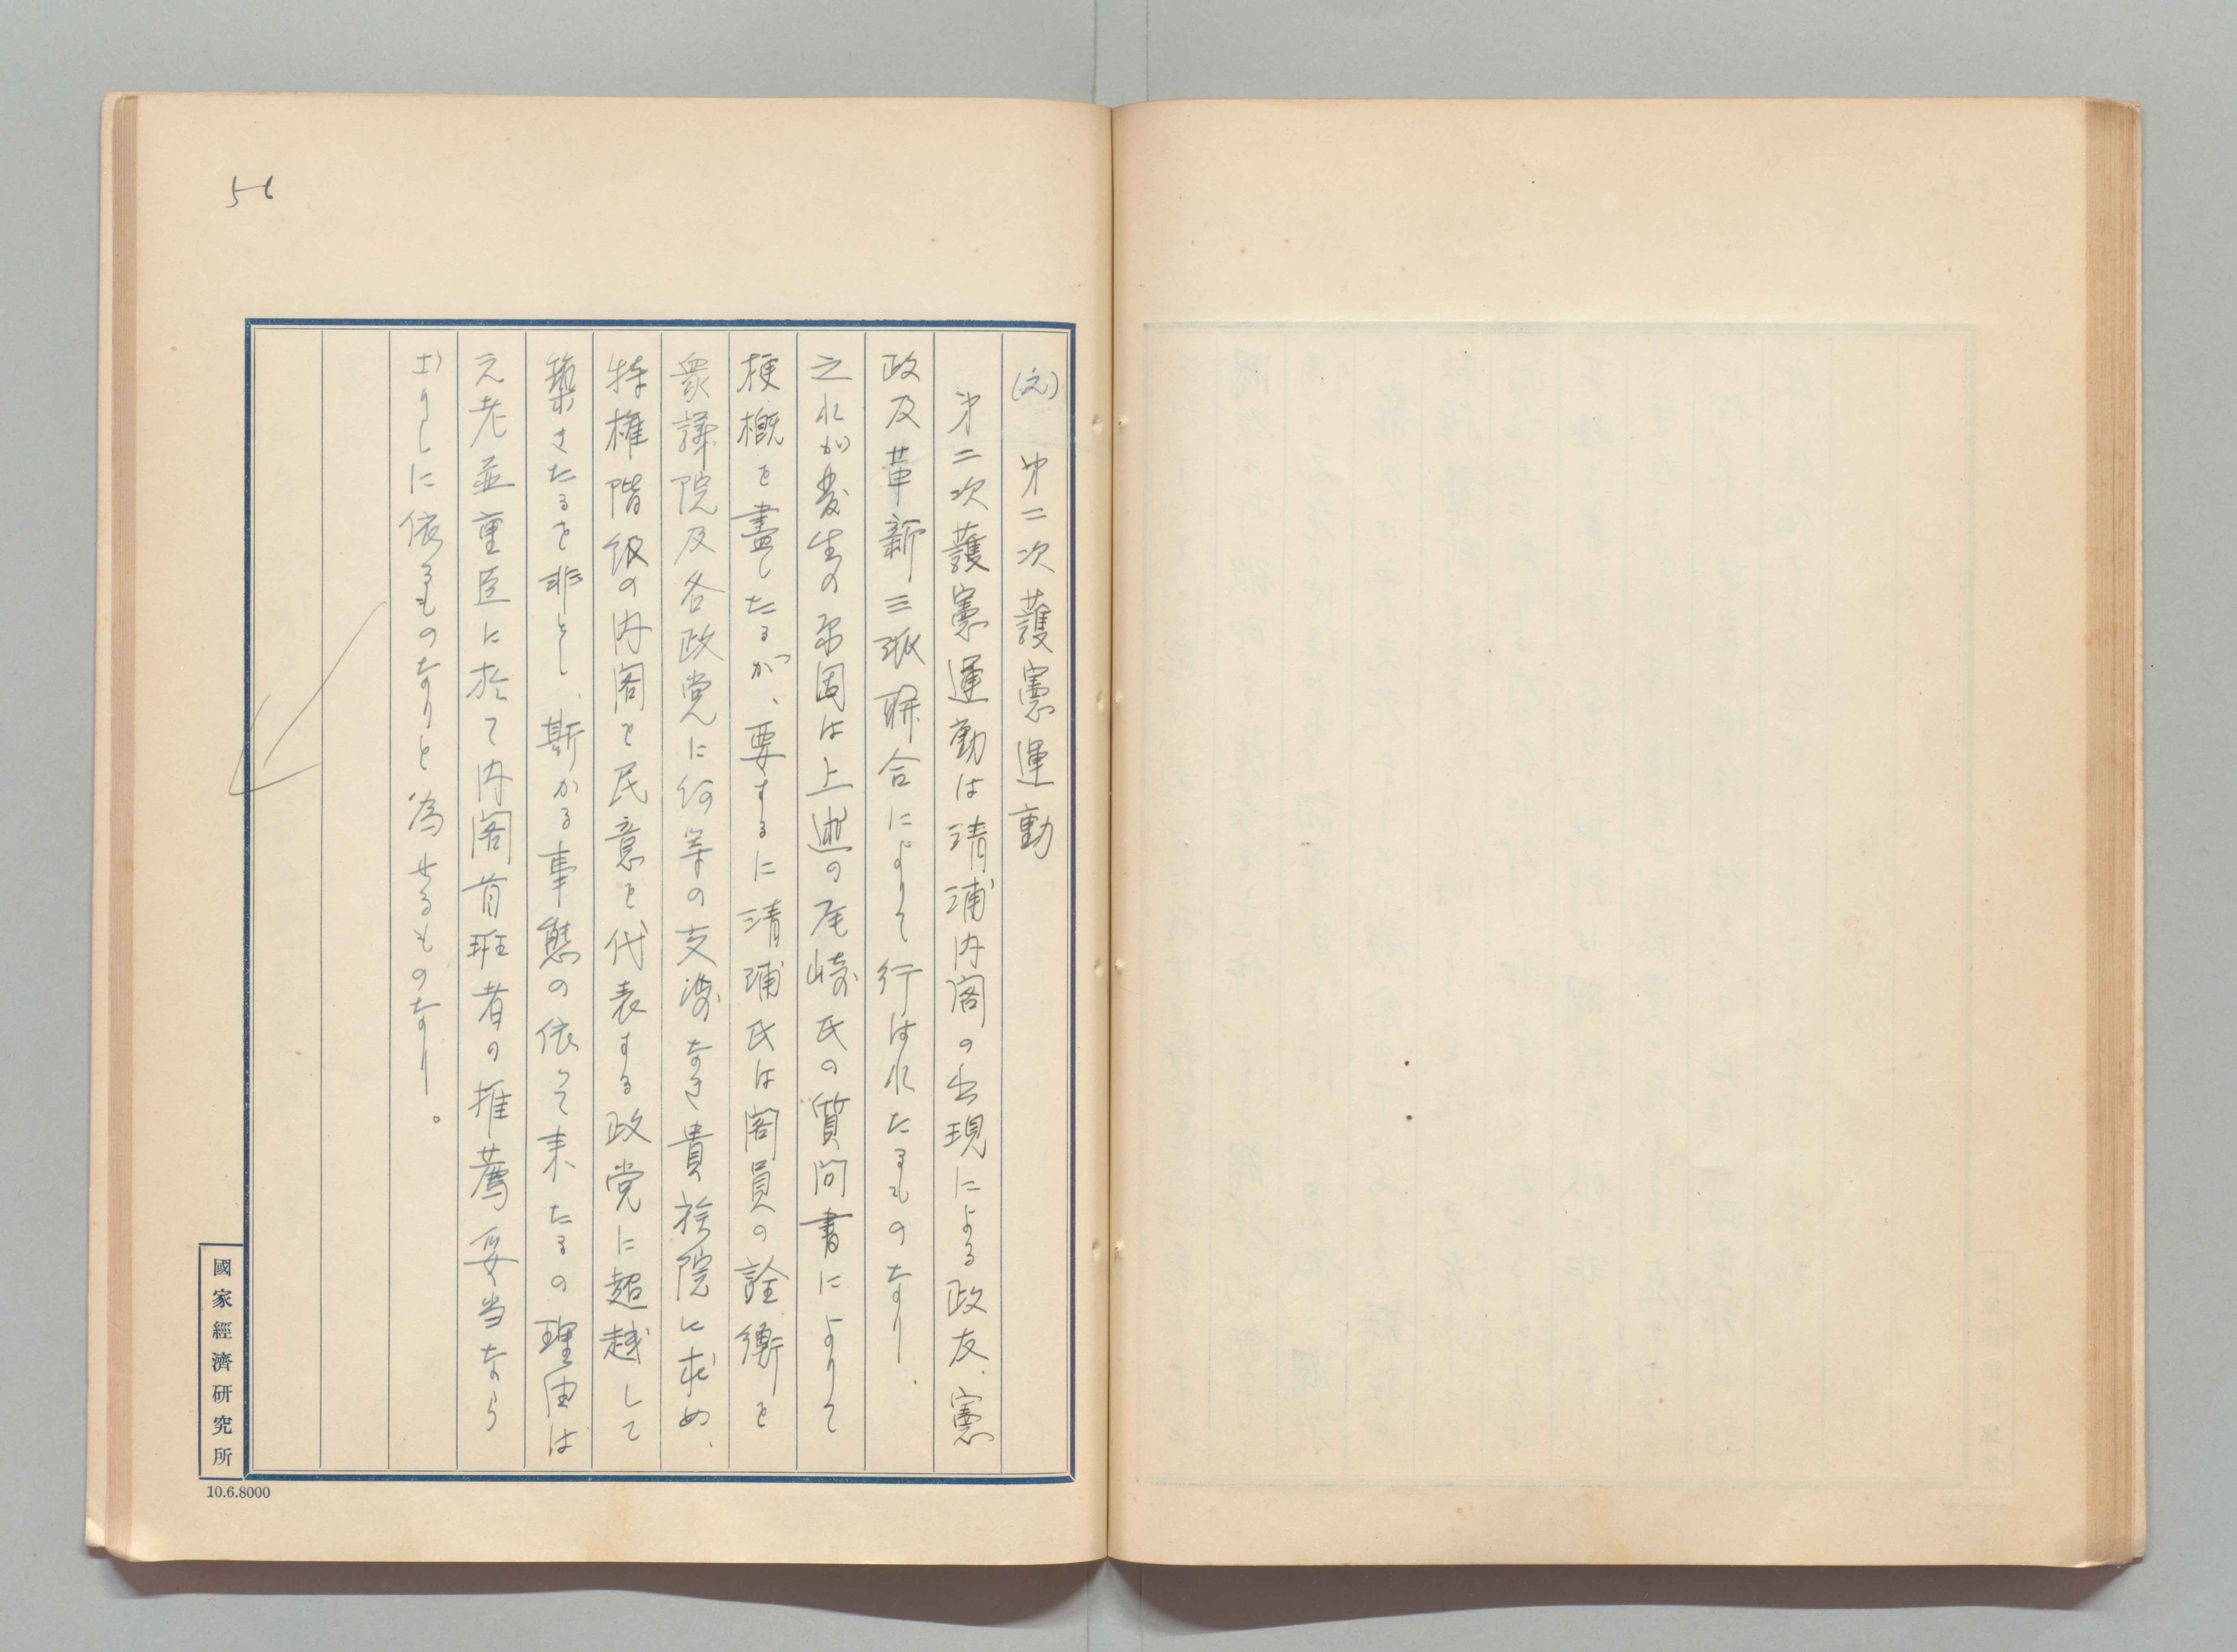 56
(六) 第二次護憲運動
第二次護憲運動は清浦内閣の出現による政友、憲
政及革新三派聯合によりて行はれたるものなり.
之れが発生の原因は上述の尾崎氏の質問書によりて
梗概を盡したるが、要するに清浦氏は閣員の詮衡を
衆議院及各政党に何等の交渉なき貴族院に求め、
特権階級の内閣を民意を代表する政党に超越して
築きたるを非とし、斯かる事態の依って来たるの理由は
元老並重臣に於て内閣首班者の推薦妥当なら
ざりしに依るものなりと為せるものなり。
國家經濟研究所
10.6.8000